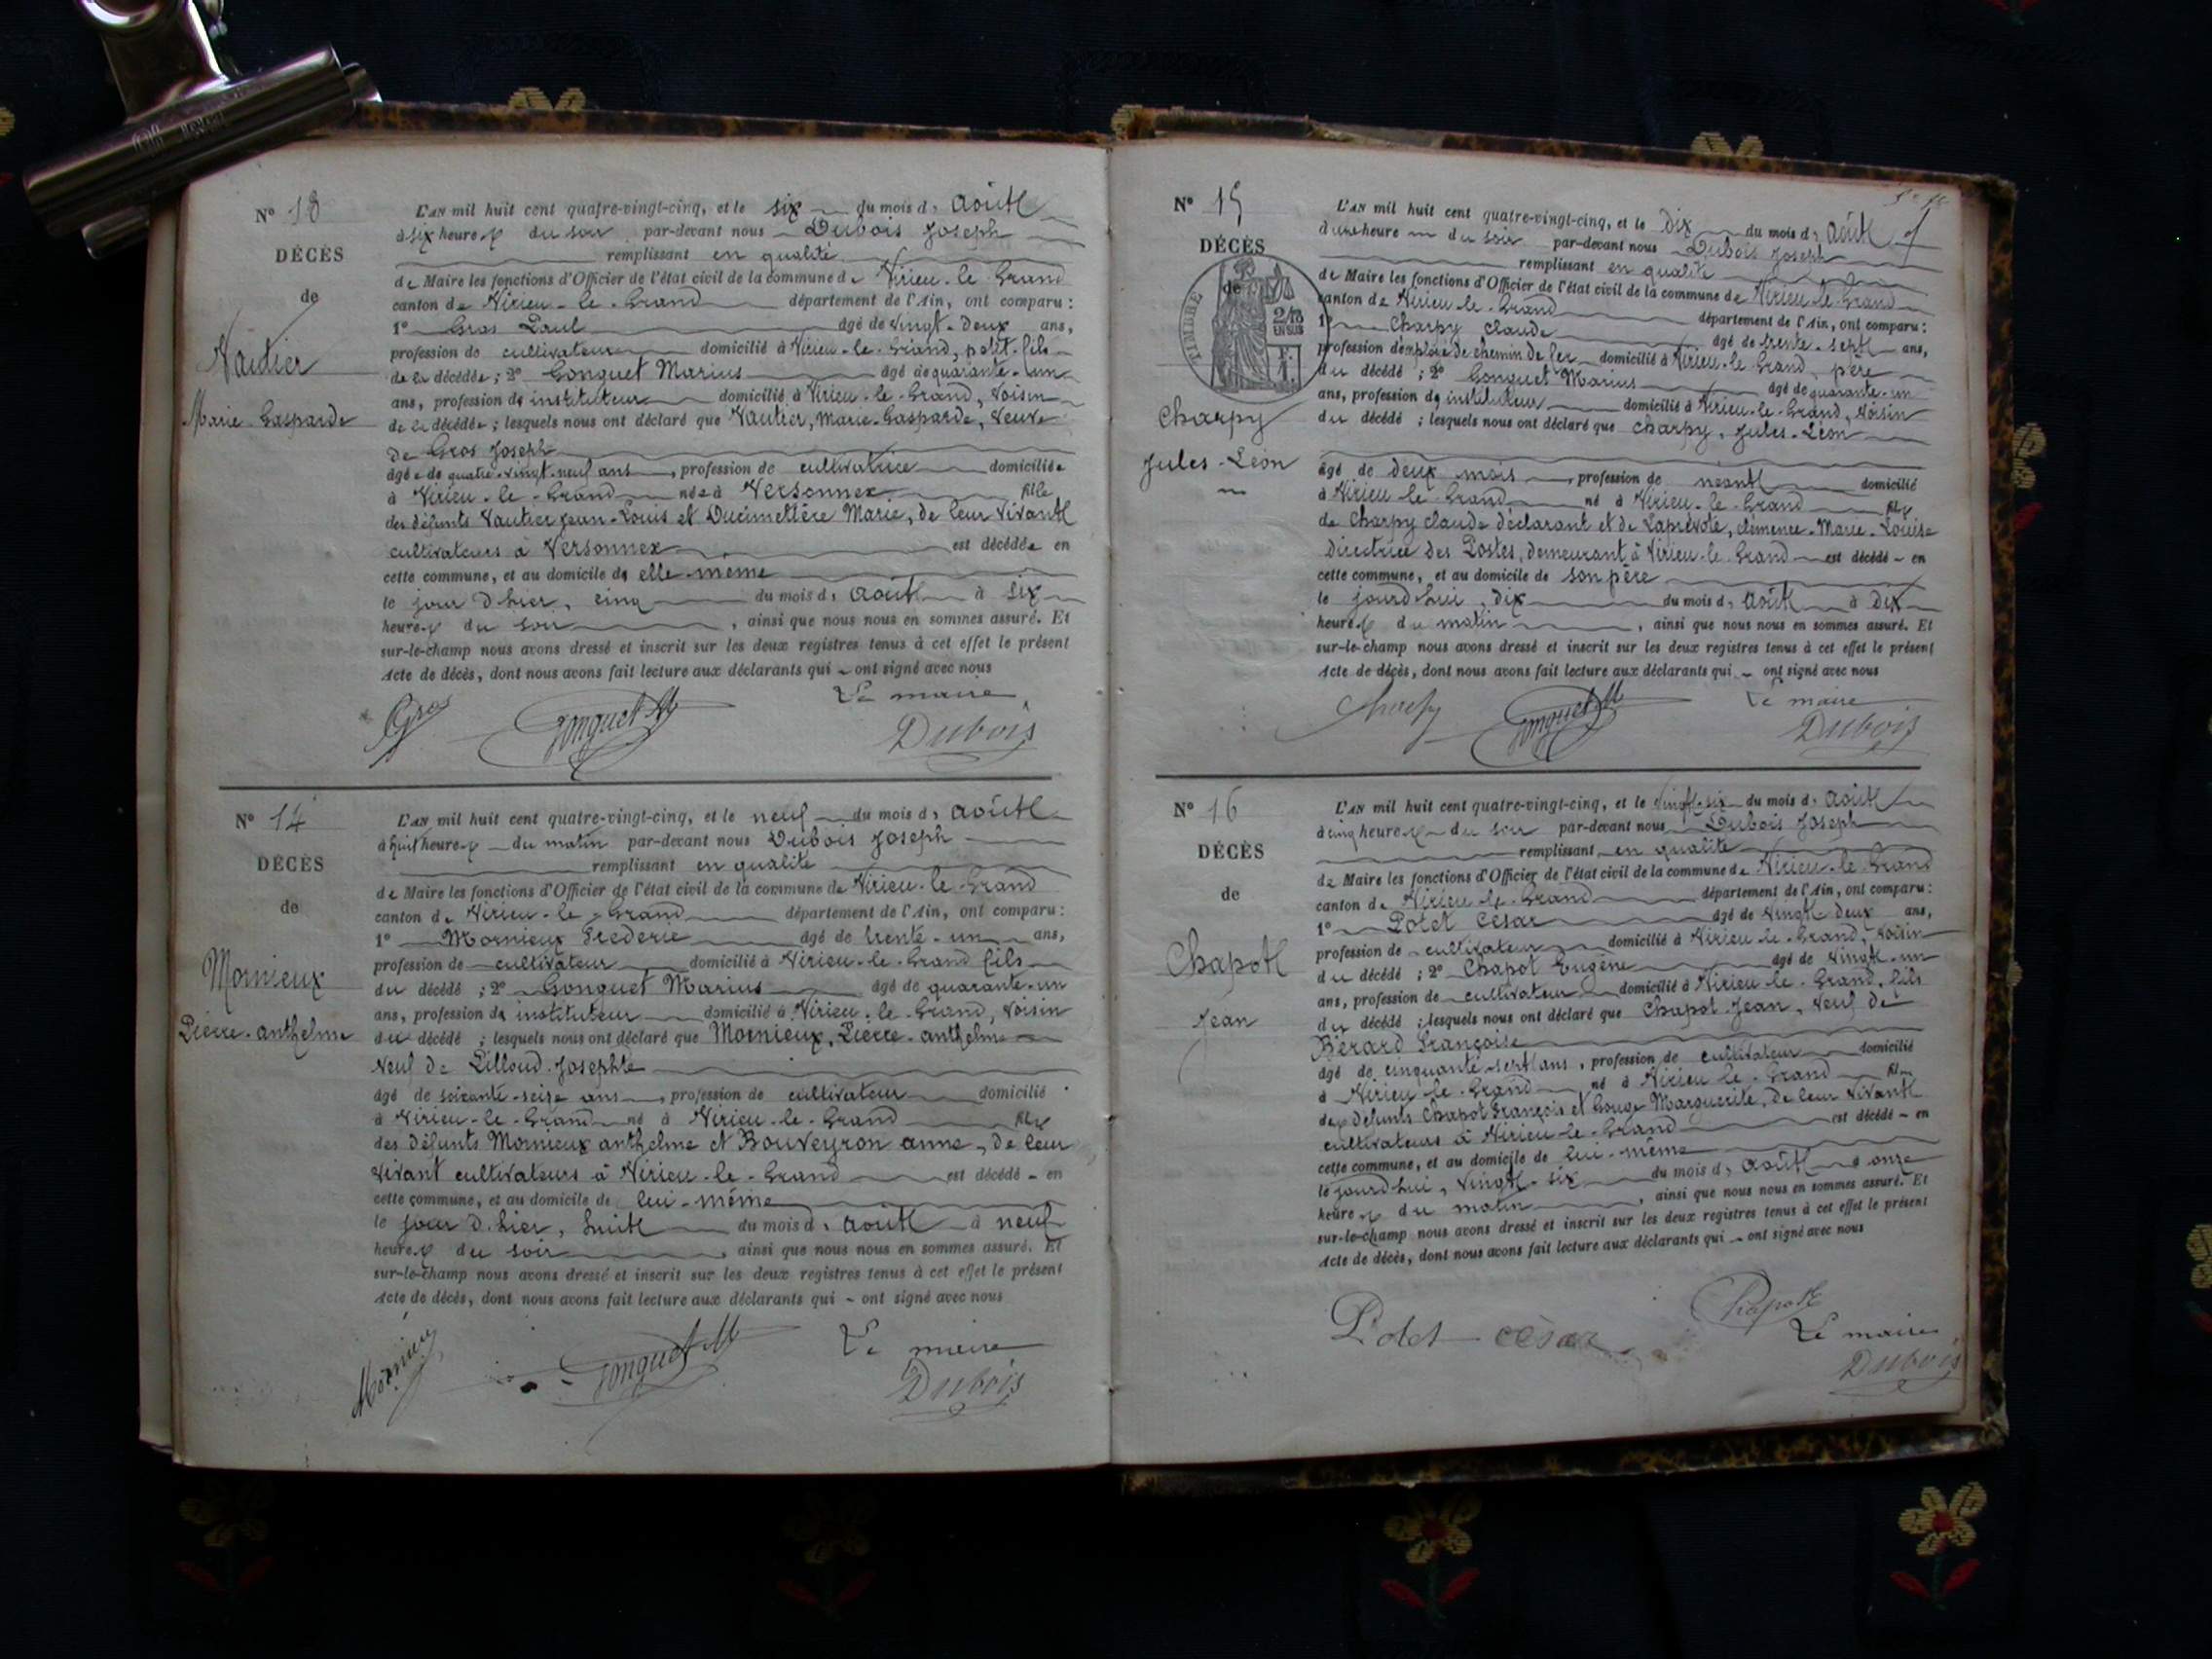 N° 13
DÉCÈS
de
Vautier
Marie Gasparde
L'AN mil huit cent quatre-vingt-cinq, et le six du mois d'Août
à six heures du soir par-devant nous Dubois Joseph
remplissant en qualité
de Maire les fonctions d'Officier de l'état civil de la commune de Virieu-le-Grand
canton de Virieu-le-Grand département de l'Ain, ont comparu :
1° Gros Paul âgé de vingt-deux ans,
profession de cultivateur domicilié à Virieu-le-Grand, petit-fils
de la décédée ; 2° Gonguet Marius âgé de quarante-un
ans, profession de instituteur domicilié à Virieu-le-Grand, voisin
de la décédée ; lesquels nous ont déclaré que Vautier, Marie-Gasparde, veuve
de Gros Joseph
âgée de quatre-vingt-neuf ans, profession de cultivatrice domiciliée
à Virieu-le-Grand née à Versonnex fille
des défunts Vautier Jean-Louis et Ducimettère Marie, de leur vivant
cultivateurs à Versonnex est décédée en
cette commune, et au domicile de elle-même
le jour d'hier, cinq du mois d'Août à six
heures du soir, ainsi que nous nous en sommes assuré. Et
sur-le-champ nous avons dressé et inscrit sur les deux registres tenus à cet effet le présent
Acte de décès, dont nous avons fait lecture aux déclarants qui ont signé avec nous
Le maire
Gros Gonguet M Dubois
N° 14
DÉCÈS
de
Mornieux
Pierre-anthelme
L'AN mil huit cent quatre-vingt-cinq, et le neuf du mois d'Août
à huit heures du matin par-devant nous Dubois Joseph
remplissant en qualité
de Maire les fonctions d'Officier de l'état civil de la commune de Virieu-le-Grand
canton de Virieu-le-Grand département de l'Ain, ont comparu :
1° Mornieux Frederic âgé de trente-un ans,
profession de cultivateur domicilié à Virieu-le-Grand fils
du décédé ; 2° Gonguet Marius âgé de quarante-un
ans, profession de instituteur domicilié à Virieu-le-Grand, voisin
du décédé ; lesquels nous ont déclaré que Mornieux, Pierre-anthelme
veuf de Lilloud Josephte
âgé de soixante-seize ans, profession de cultivateur domicilié
à Virieu-le-Grand né à Virieu-le-Grand fils
des défunts Mornieux anthelme et Bouveyron anne, de leur
vivant cultivateurs à Virieu-le-Grand est décédé en
cette commune, et au domicile de lui-même
le jour d'hier, huit du mois d'Août à neuf
heures du soir, ainsi que nous nous en sommes assuré. Et
sur-le-champ nous avons dressé et inscrit sur les deux registres tenus à cet effet le présent
Acte de décès, dont nous avons fait lecture aux déclarants qui ont signé avec nous
Le maire
Mornieux Gonguet M Dubois
N° 15
DÉCÈS
de
TIMBRE
2/10
EN SUS
Charpy
Jules-Léon
L'AN mil huit cent quatre-vingt-cinq, et le dix du mois d'Août
à une heure du soir par-devant nous Dubois Joseph
remplissant en qualité
de Maire les fonctions d'Officier de l'état civil de la commune de Virieu-le-Grand
canton de Virieu-le-Grand département de l'Ain, ont comparu :
1° Charpy Claude âgé de trente-sept ans,
profession d'employé de chemin de fer domicilié à Virieu-le-Grand, père
du décédé ; 2° Gonguet Marius âgé de quarante-un
ans, profession de instituteur domicilié à Virieu-le-Grand, voisin
du décédé ; lesquels nous ont déclaré que Charpy, Jules-Léon
âgé de deux mois, profession de néant domicilié
à Virieu-le-Grand né à Virieu-le-Grand fils
de Charpy Claude déclarant et de Laprévote, clémence-Marie-Louise
directrice des Postes, demeurant à Virieu-le-Grand est décédé en
cette commune, et au domicile de son père
le jourd'hui, dix du mois d'Août à dix
heures du matin, ainsi que nous nous en sommes assuré. Et
sur-le-champ nous avons dressé et inscrit sur les deux registres tenus à cet effet le présent
Acte de décès, dont nous avons fait lecture aux déclarants qui ont signé avec nous
Le maire
Charpy Gonguet M Dubois
N° 16
DÉCÈS
de
Chapot
Jean
L'AN mil huit cent quatre-vingt-cinq, et le vingt-six du mois d'Août
à cinq heures du soir par-devant nous Dubois Joseph
remplissant en qualité
de Maire les fonctions d'Officier de l'état civil de la commune de Virieu-le-Grand
canton de Virieu-le-Grand département de l'Ain, ont comparu :
1° Potet César âgé de vingt-deux ans,
profession de cultivateur domicilié à Virieu-le-Grand, voisin
du décédé ; 2° Chapot Eugène âgé de vingt-un
ans, profession de cultivateur domicilié à Virieu-le-Grand, fils
du décédé ; lesquels nous ont déclaré que Chapot Jean, veuf de
Bérard Françoise
âgé de cinquante-sept ans, profession de cultivateur domicilié
à Virieu-le-Grand né à Virieu-le-Grand fils
des défunts Chapot François et Gouge Marguerite, de leur vivant
cultivateurs à Virieu-le-Grand est décédé en
cette commune, et au domicile de lui-même
le jourd'hui, vingt-six du mois d'Août à onze
heures du matin, ainsi que nous nous en sommes assuré. Et
sur-le-champ nous avons dressé et inscrit sur les deux registres tenus à cet effet le présent
Acte de décès, dont nous avons fait lecture aux déclarants qui ont signé avec nous
Potet césar Chapot
Le maire
Dubois